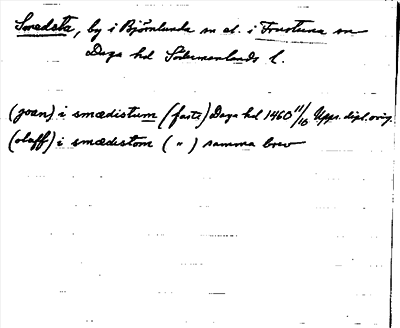 Smedsta, by i Björnlunda sn el. i Frustuna sn
Daga hd Södermanlands l.
(joan) i smædistum (faste) Daga hd 1460 11/10 Upps. dipl. orig.
(olaff) i smædistom ( " ) samma brev